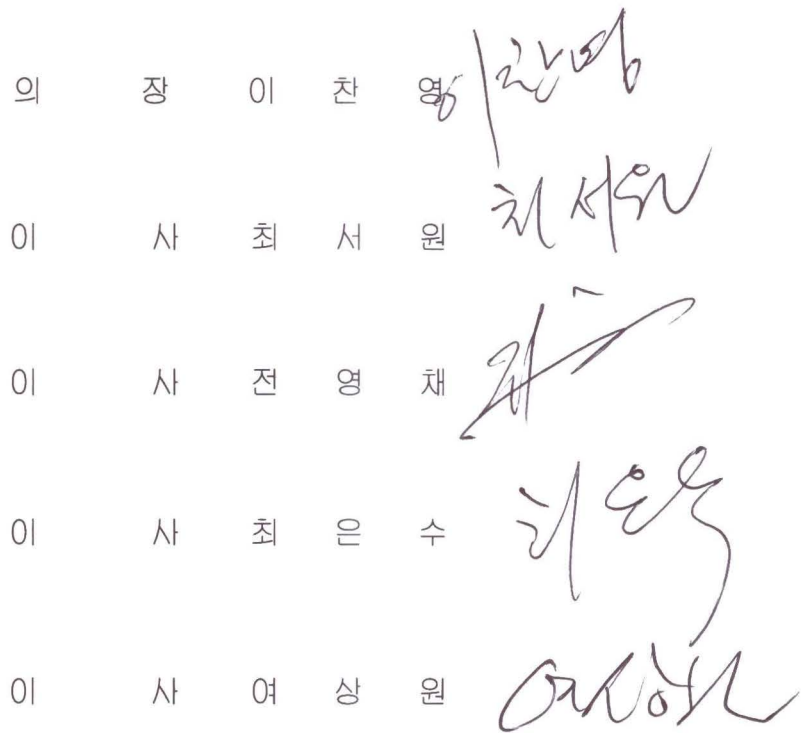 의 장 이 찬 영 이찬영
이 사 최 서 원 최서원
이 사 전 영 채
이 사 최 은 수 최은수
이 사 여 상 원 여상원